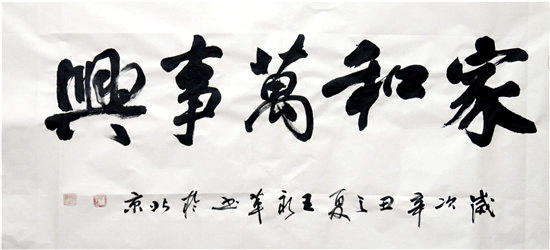 家和萬事興
歲次辛丑之夏王永革書於北京